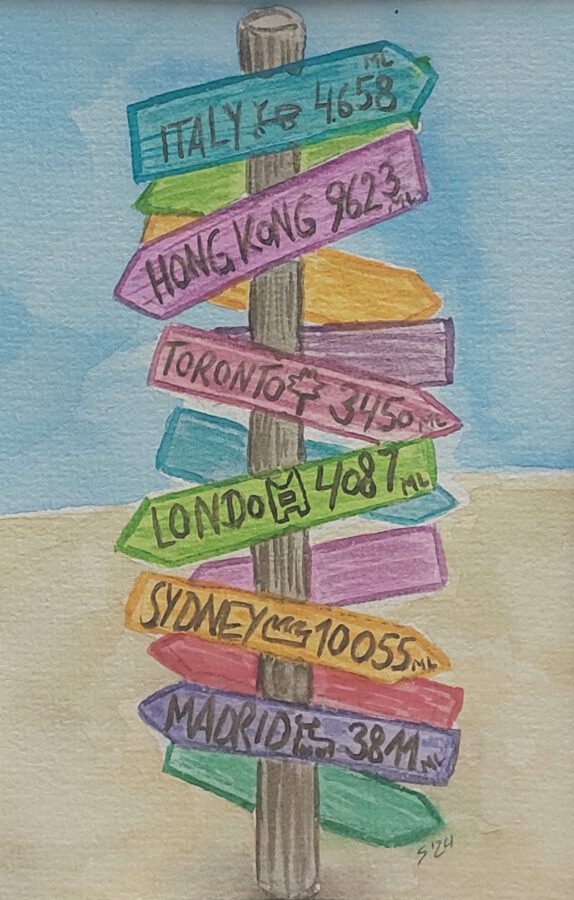 ITALY 4658 ML
HONG KONG 9623 ML
TORONTO 3450 ML
LONDON 4087 ML
SYDNEY 10055 ML
MADRID 3811 ML
S '24